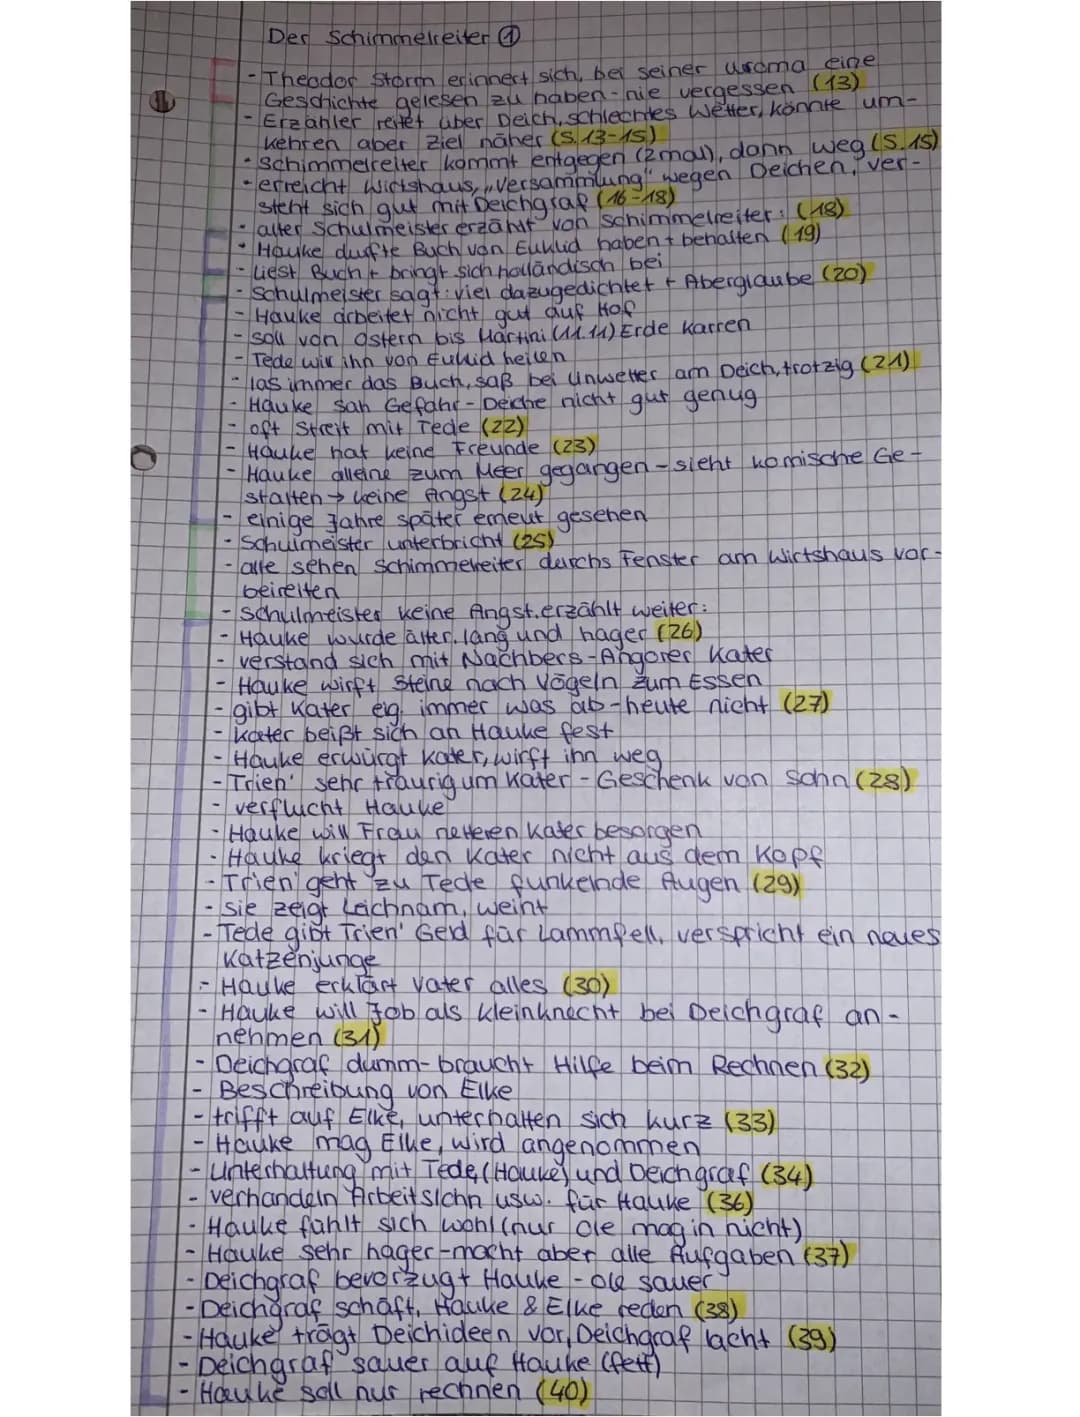 Der Schimmelreiter ①
- Theodor Storm erinnert sich, bei seiner Uroma eine
Geschichte gelesen zu haben - nie vergessen (13)
- Erzähler reitet über Deich, schlechtes Wetter, könnte um-
kehren aber Ziel näher (S.13-15)
- Schimmelreiter kommt entgegen (2mal), dann weg (S.15)
- erreicht Wirtshaus, „Versammlung" wegen Deichen, ver-
steht sich gut mit Deichgraf (16-18)
- alter Schulmeister erzählt von Schimmelreiter: (18)
- Hauke durfte Buch von Euklid haben + behalten (19)
- liest Buch + bringt sich holländisch bei
- Schulmeister sagt: viel dazugedichtet + Aberglaube (20)
- Hauke arbeitet nicht gut auf Hof
- soll von Ostern bis Martini (11.11) Erde karren
- Tede will ihn von Euklid heilen
- las immer das Buch, saß bei Unwetter am Deich, trotzig (21)
- Hauke sah Gefahr - Deiche nicht gut genug
- oft Streit mit Tede (22)
- Hauke hat keine Freunde (23)
- Hauke alleine zum Meer gegangen - sieht komische Ge-
stalten → keine Angst (24)
- einige Jahre später erneut gesehen
- Schulmeister unterbricht (25)
- alle sehen Schimmelreiter durchs Fenster am Wirtshaus vor-
beireiten
- Schulmeister keine Angst. erzählt weiter:
- Hauke wurde älter, lang und hager (26)
- verstand sich mit Nachbers-Angorer Kater
- Hauke wirft Steine nach Vögeln zum Essen
- gibt Kater eig. immer was ab - heute nicht (27)
- Kater beißt sich an Hauke fest
- Hauke erwürgt Kater, wirft ihn weg
- Trien' sehr traurig um Kater - Geschenk von Sohn (28)
- verflucht Hauke
- Hauke will Frau netteren Kater besorgen
- Hauke kriegt den Kater nicht aus dem Kopf
- Trien' geht zu Tede funkelnde Augen (29)
- sie zeigt Leichnam, weint
- Tede gibt Trien' Geld für Lammfell, verspricht ein neues
Katzenjunge
- Hauke erklärt Vater alles (30)
- Hauke will Job als Kleinknecht bei Deichgraf an-
nehmen (31)
- Deichgraf dumm - braucht Hilfe beim Rechnen (32)
- Beschreibung von Elke
- trifft auf Elke, unterhalten sich kurz (33)
- Hauke mag Elke, wird angenommen
- Unterhaltung mit Tede, (Hauke) und Deichgraf (34)
- verhandeln Arbeitslohn usw. für Hauke (36)
- Hauke fühlt sich wohl (nur Ole mag in nicht)
- Hauke sehr hager - macht aber alle Aufgaben (37)
- Deichgraf bevorzugt Hauke - Ole sauer
- Deichgraf schäft, Hauke & Elke reden (38)
- Hauke trägt Deichideen vor, Deichgraf lacht (39)
- Deichgraf sauer auf Hauke (fett)
- Hauke soll nur rechnen (40)